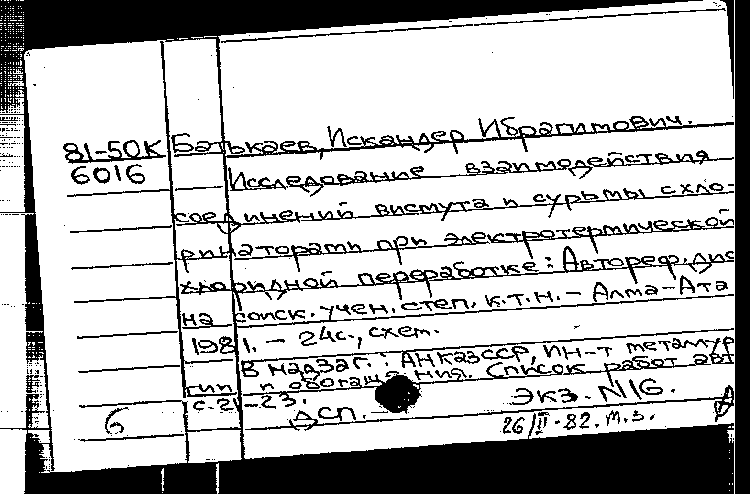 81-50К Батькаев, Искандер Ибрагимович.
6016 Исследование взаимодействия
соединений висмута и сурьмы с хло-
ринаторами при электротермической
хлоридной переработке: Автореф. дис
на соиск. учен. степ. к.т.н. – Алма-Ата
1981. – 24с., схем.
В надзаг.: АН КазССР, Ин-т металлур
гии и обогащения. Список работ авт
с. 21-23.
ДСП. Экз. N16.
6 26/II-82. м.з.